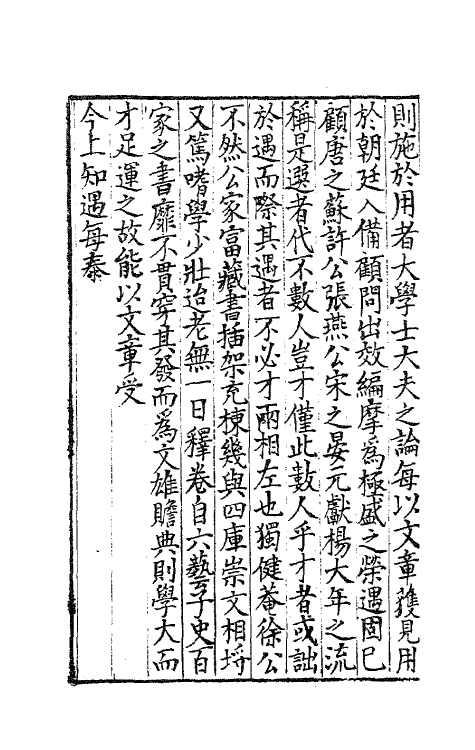 則施於用者大學士大夫之論每以文章獲見用
於朝廷入備顧問出效編摩為極盛之榮遇固已
顧唐之蘇許公張燕公宋之晏元獻楊大年之流
稱是選者代不數人豈才僅此數人乎才者或詘
於遇而際其遇者不必才兩相左也獨健菴徐公
不然公家富藏書插架充棟幾與四庫崇文相埒
又篤嗜學少壯迨老無一日釋卷自六藝子史百
家之書靡不貫穿其發而為文雄贍典則學大而
才足運之故能以文章受
今上知遇每奏